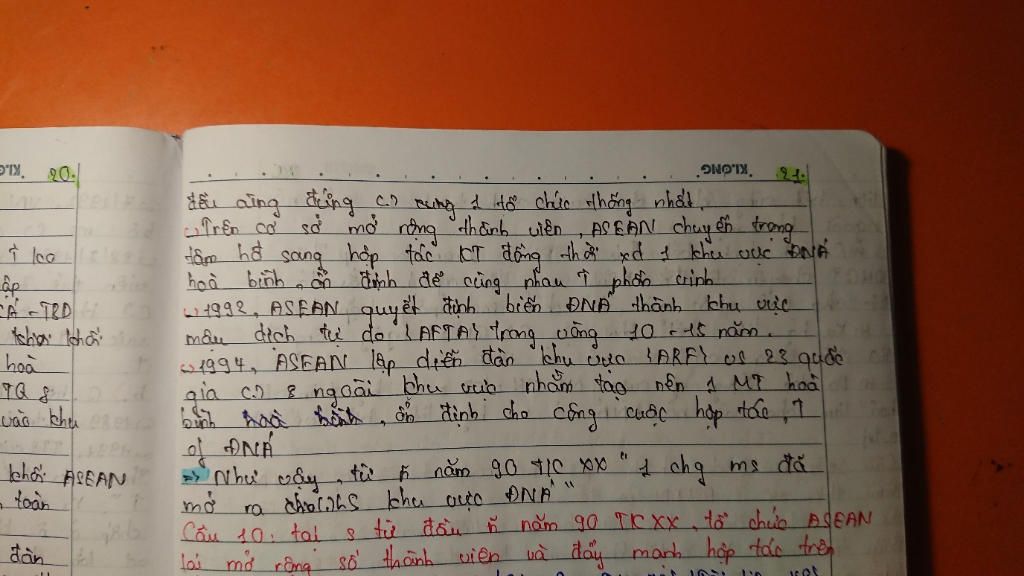 20.
↑ kO
CÁ - TBD
khỏi khối
hoà
TQ &
vào khu
khối ASEAN
toàn
đàn
KLONG
21.
đều cùng đứng trong 1 tổ chức thống nhất.
Trên cơ sở mở rộng thành viên, ASEAN chuyển trọng
tâm hđ sang hợp tác KT đồng thời xd 1 khu vực ĐNÁ
hoà bình, ổn định để cùng nhau ↑ phồn vinh
1992, ASEAN quyết định biến ĐNÁ thành khu vực
mậu dịch tự do (AFTA) trong vòng 10 - 15 năm.
1994, ASEAN lập diễn đàn khu vực (ARF) vs 23 quốc
gia & ngoài khu vực nhằm tạo nên 1 MT hoà
bình, ổn định cho công cuộc hợp tác, ↑
of ĐNÁ
=> Như vậy, từ ~ năm 90 TK XX "1 chg ms đã
mở ra LS khu vực ĐNÁ"
Câu 10: tại s từ đầu ~ năm 90 TK XX, tổ chức ASEAN
lại mở rộng số thành viên và đẩy mạnh hợp tác trên